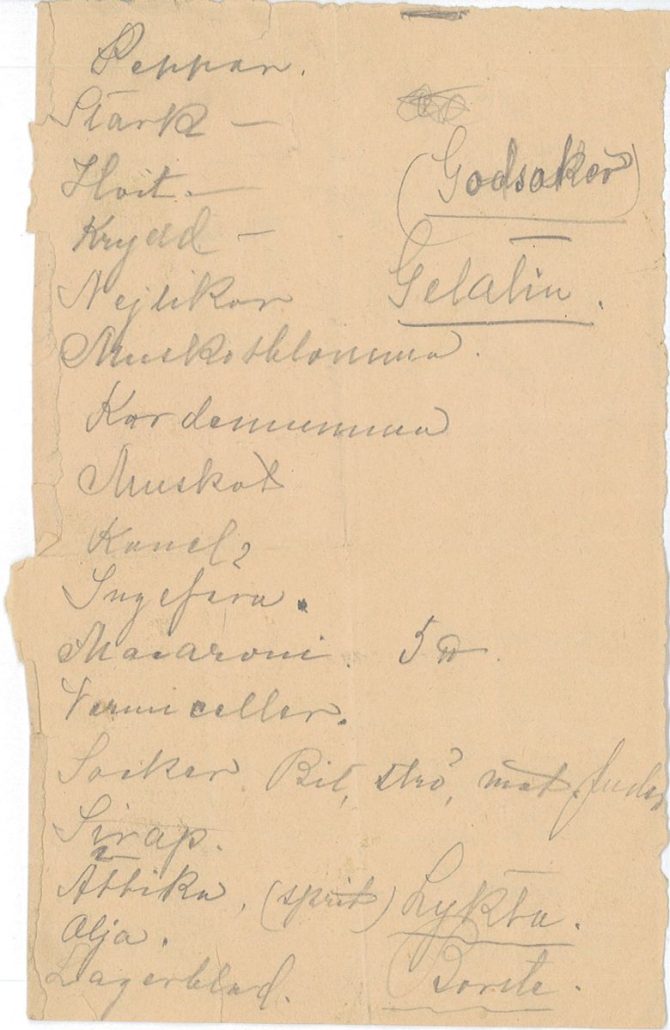 Peppar.
Stark —
Hvit. —
(Godsaker)
Krydd —
Nejlikor
Gelatin.
Muskotblomma.
Kardemumma
Muskot
Kanel?
Ingefära.
Macaroni. 5 ℔.
Vermiceller.
Socker. Bit, strö, mat
Sirap.
Ättika, (sprit) Lykta.
Olja.
Lagerblad. Borste.